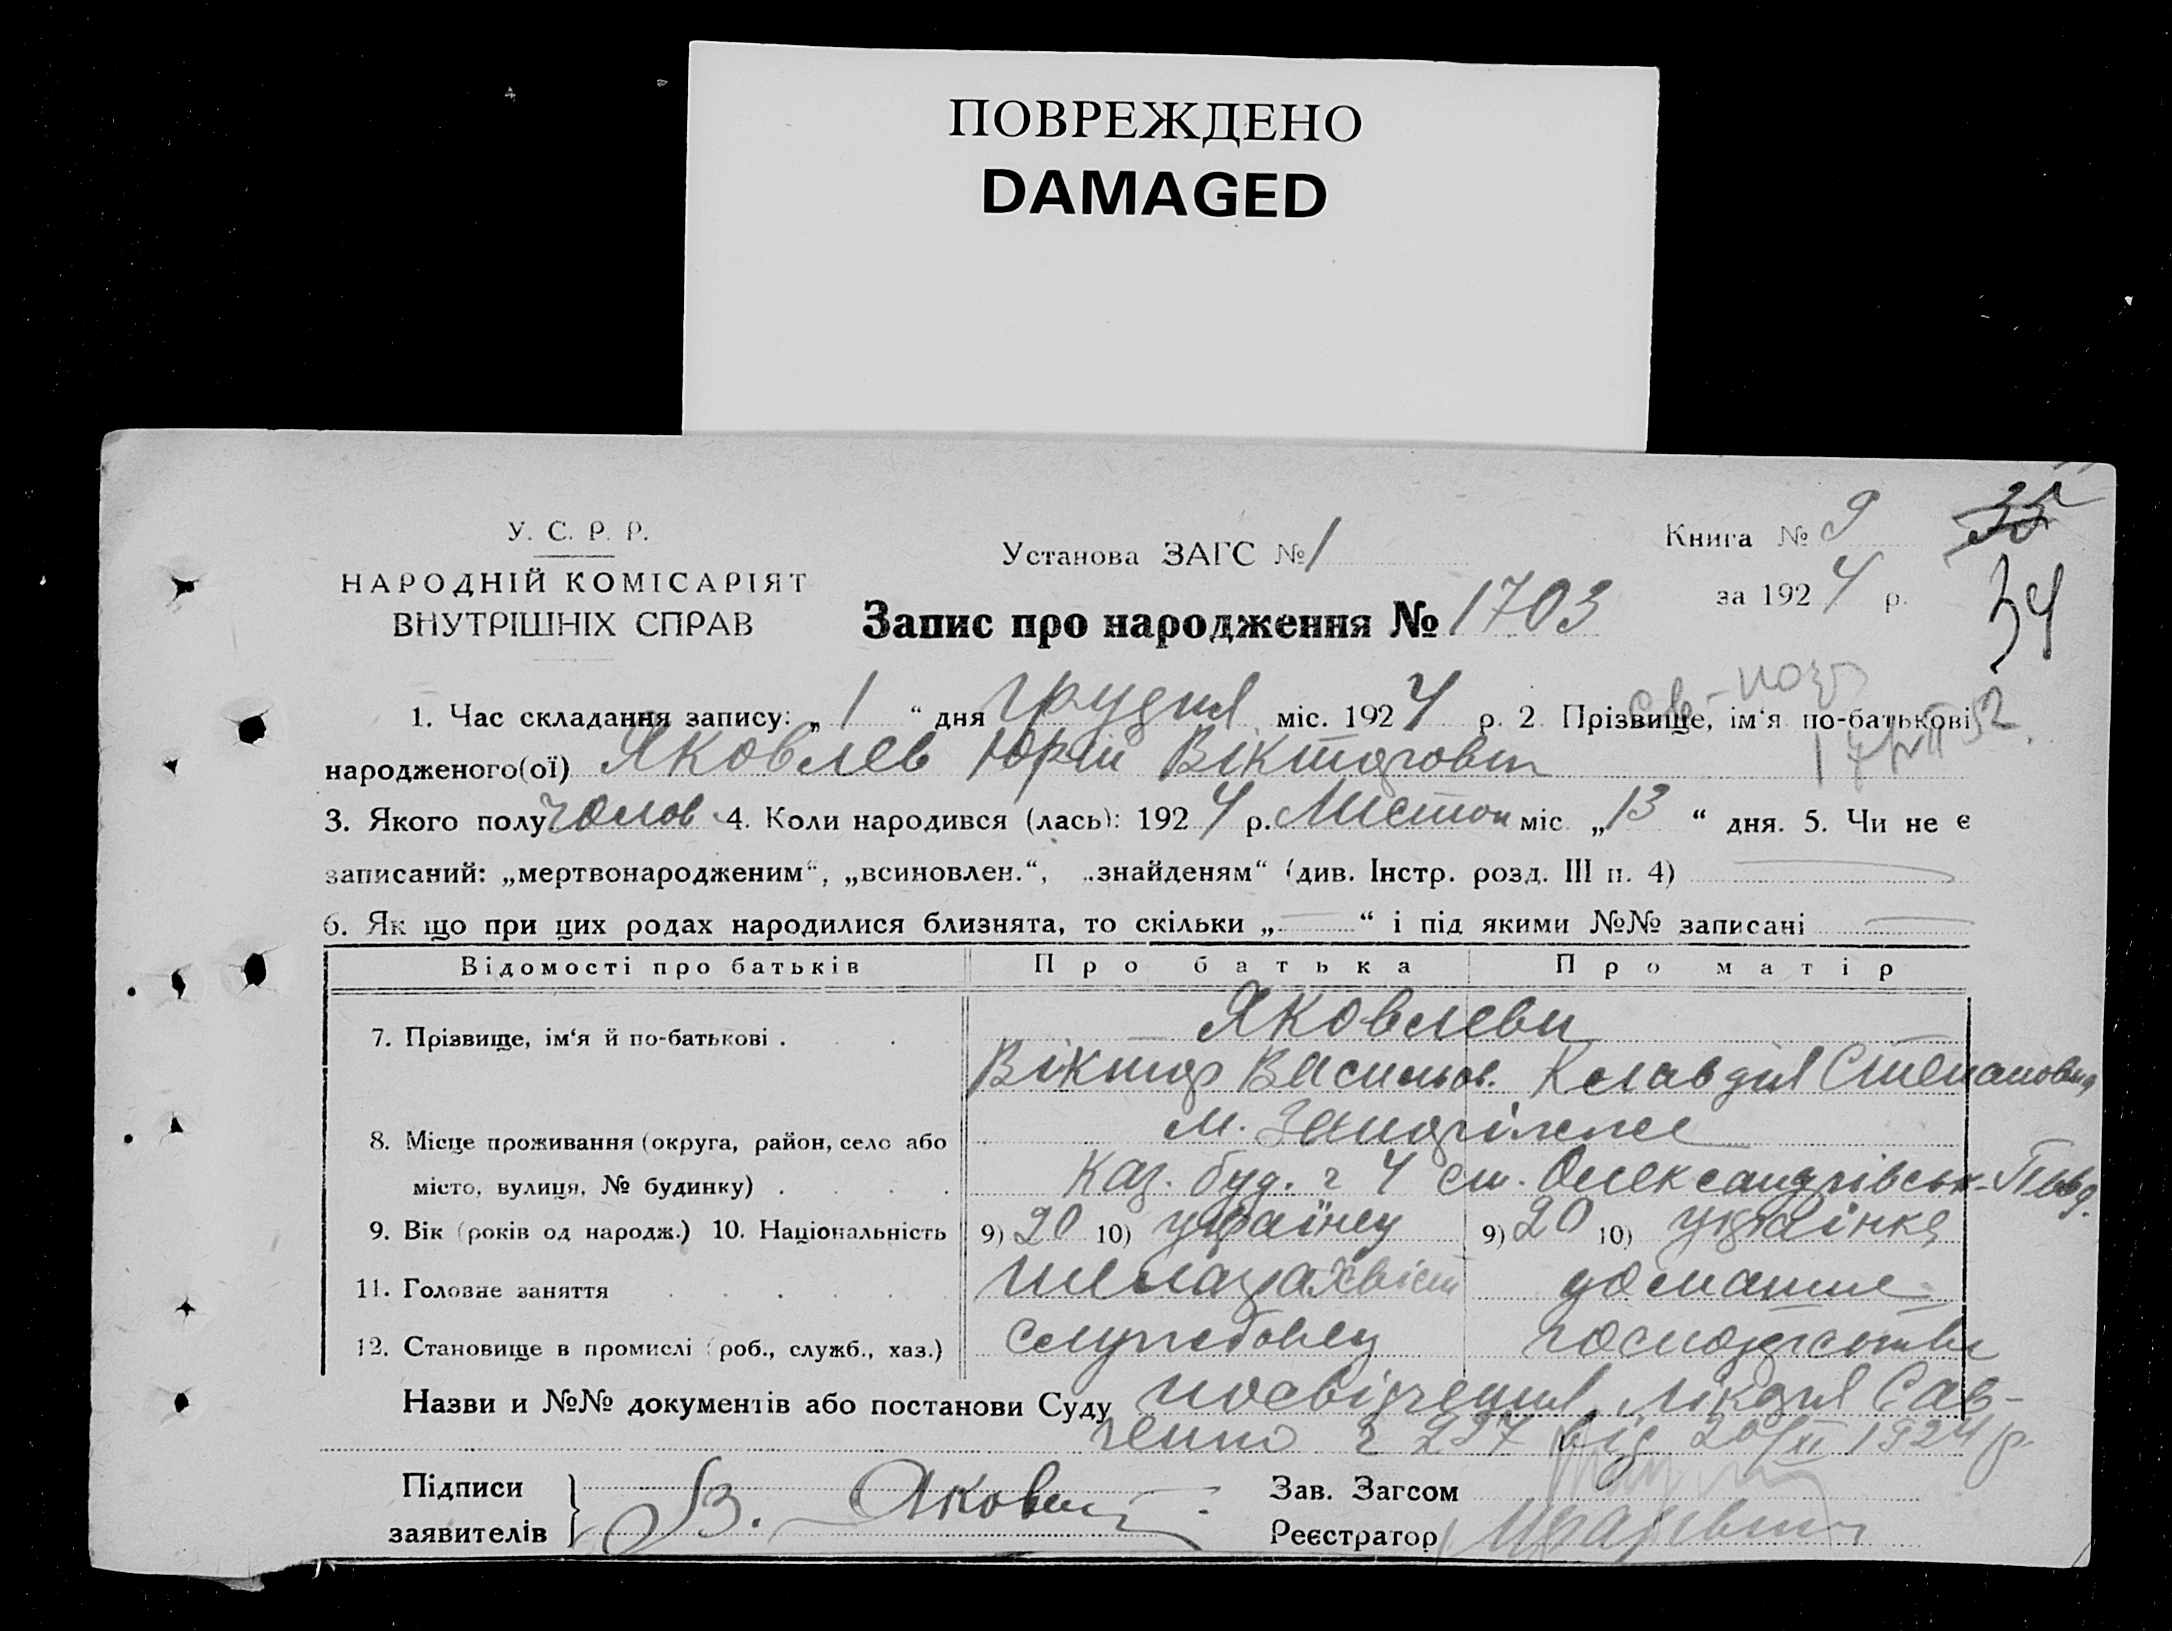 ПОВРЕЖДЕНО
DAMAGED
У. С. Р. Р.
НАРОДНІЙ КОМІСАРІЯТ
ВНУТРІШНІХ СПРАВ
Установа ЗАГС № 1
Запис про народження № 1703
Книга № 9
за 1924 р.
35
34
1. Час складання запису: „1“ дня грудня міс. 1924 р. 2 Прізвище, ім‘я по-батькові
народженого(ої) Яковлев Юрій Вікторович
3. Якого полу чолов. 4. Коли народився (лась): 1924 р. Листоп міс. „13“ дня. 5. Чи не є
записаний: „мертвонародженим“, „всиновлен.“, „знайденям“ (див. Інстр. розд. III п. 4)
6. Як що при цих родах народилися близнята, то скільки „—“ і під якими №№ записані —
Відомості про батьків Про батька Про матір
7. Прізвище, ім‘я й по-батькові . Яковлеви
Віктор Васильов. Клавдія Степановна
8. Місце проживання (округа, район, село або м. Запоріжжє
місто, вулиця, № будинку) . каз. буд. ч 4 ст. Олександрівськ-Півд.
9. Вік (років од народж.) 10. Національність 9) 20 10) українец 9) 20 10) українка
11. Головне заняття домашнє
12. Становище в промислі (роб., служб., хаз.) службовец господарство
Назви и №№ документів або постанови Суду посвідчення лікаря Сав-
ченко ч 297 від 20/XI 1924 р.
Підписи
заявителів В. Яковлев
Зав. Загсом
Реєстратор